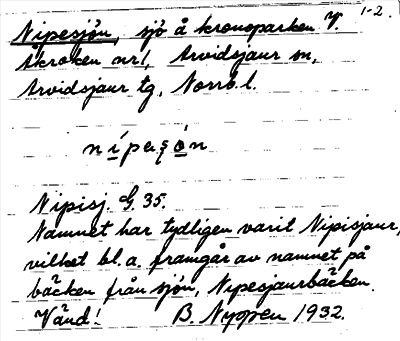 Nipesjön, sjö å kronoparken V. 1-2.
Åkroken nr 1, Arvidsjaur sn,
Arvidsjaur tg, Norrb. l.
nípeʂón
Nipisj. G. 35.
Namnet har tydligen varit Nipisjaur,
vilket bl. a. framgår av namnet på
bäcken från sjön, Nipesjaurbäcken.
Vänd! B. Nyppen 1932.